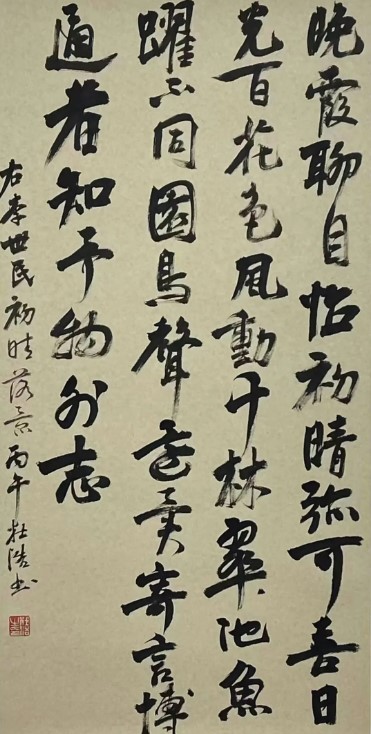 晚霞聊自怡初晴弥可喜日
晃百花色風動千林翠池魚
躍不同園鳥聲還異寄言博
通者知予物外志
右李世民初晴落景丙午杜浩书